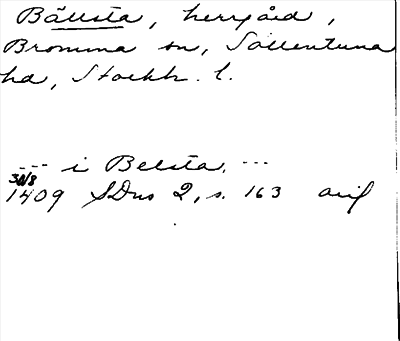 Bällsta, herrgård,
Bromma sn, Sollentuna
hd, Stockh. l.
--- i Belsta, ---
30/8
1409 SDns 2, s. 163